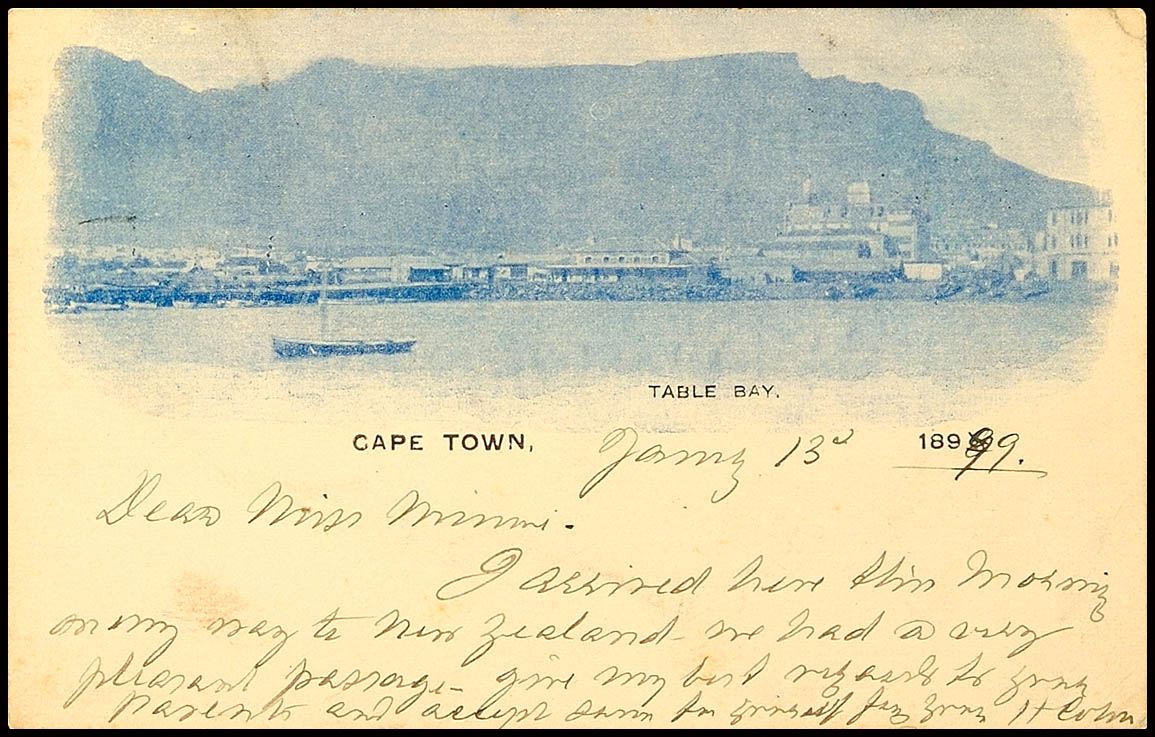 TABLE BAY.
CAPE TOWN, Jany 13d 1899.
Dear Miss Minni.
I arrived here this Morning
on my way to New Zealand - we had a very
pleasant passage - give my best regards to your
Parents and accept same to yourself